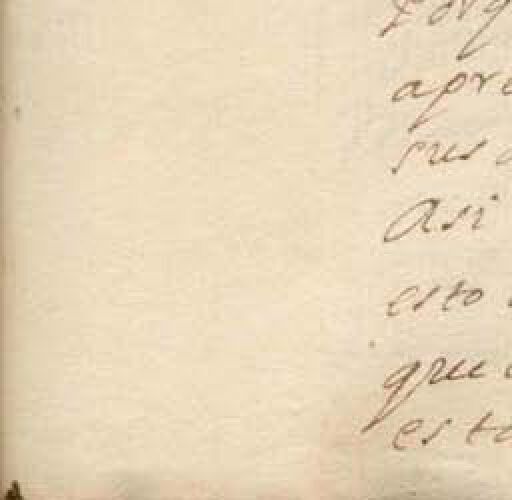 Porq
apre
sus
Asi
esto
que
esto